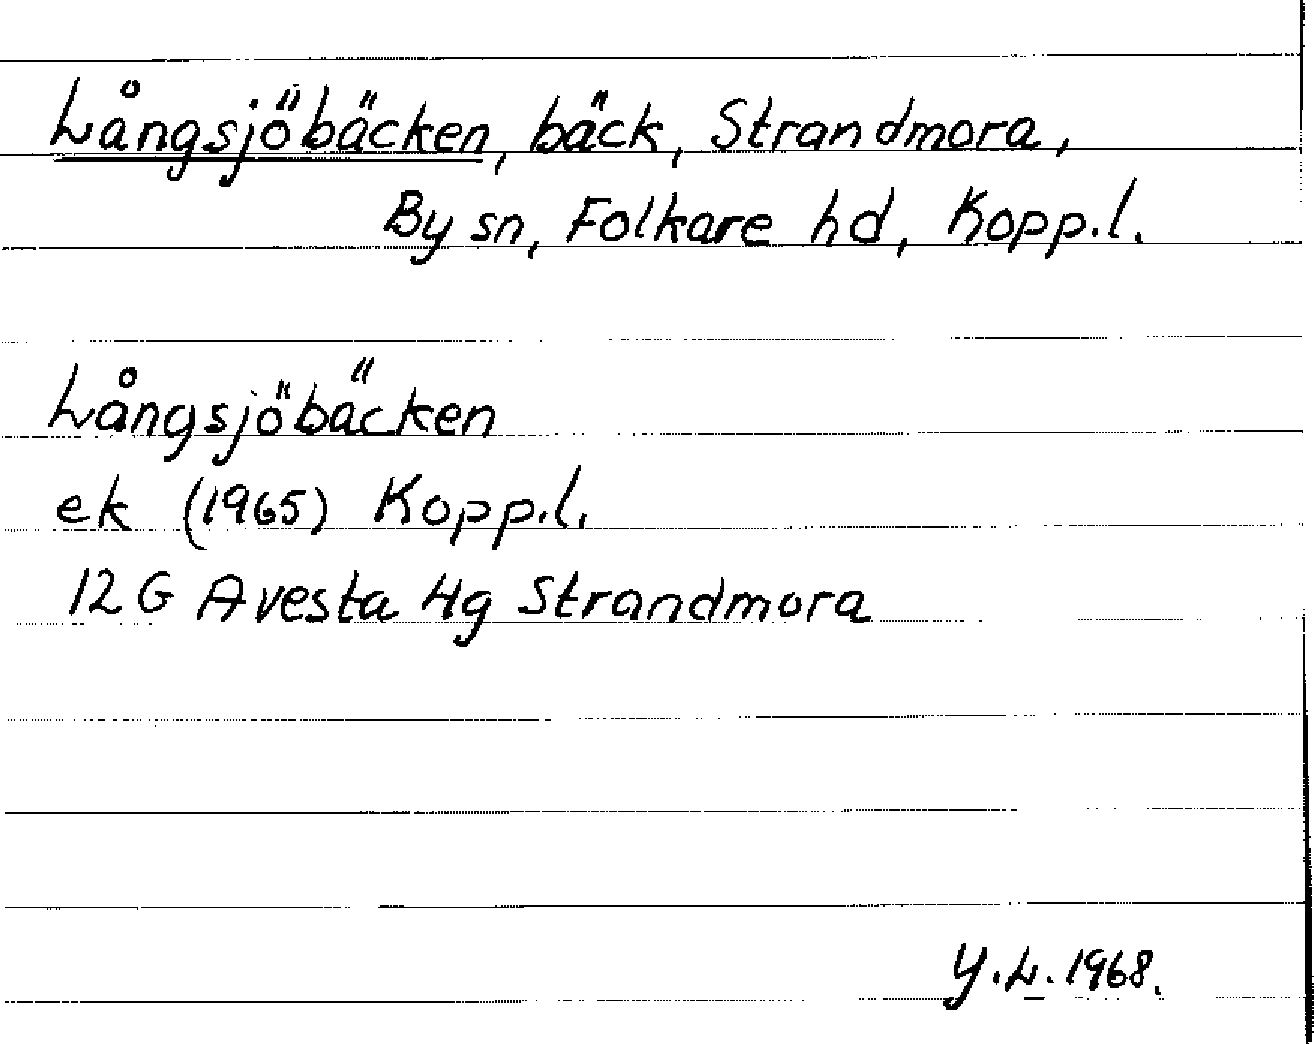 Långsjöbäcken, bäck, Strandmora,
By sn, Folkare hd, Kopp.l.
Långsjöbäcken
ek (1965) Kopp.l.
12 G Avesta 4g Strandmora
Y.L. 1968.